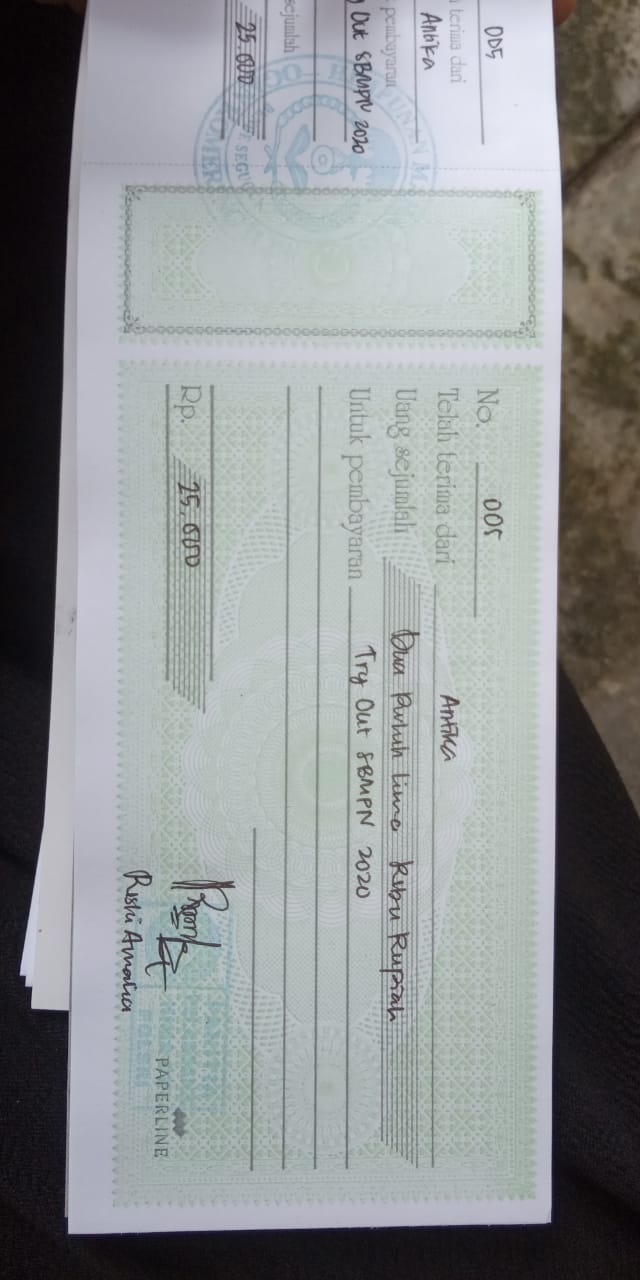 005
terima dari
Antika
pembayaran
Out SBMPN 2020
sejumlah
25.000
No. 005
Telah terima dari Antika
Uang sejumlah Dua Puluh Lima Ribu Rupiah
Untuk pembayaran Try Out SBMPN 2020
Rp. 25.000
PAPERLINE